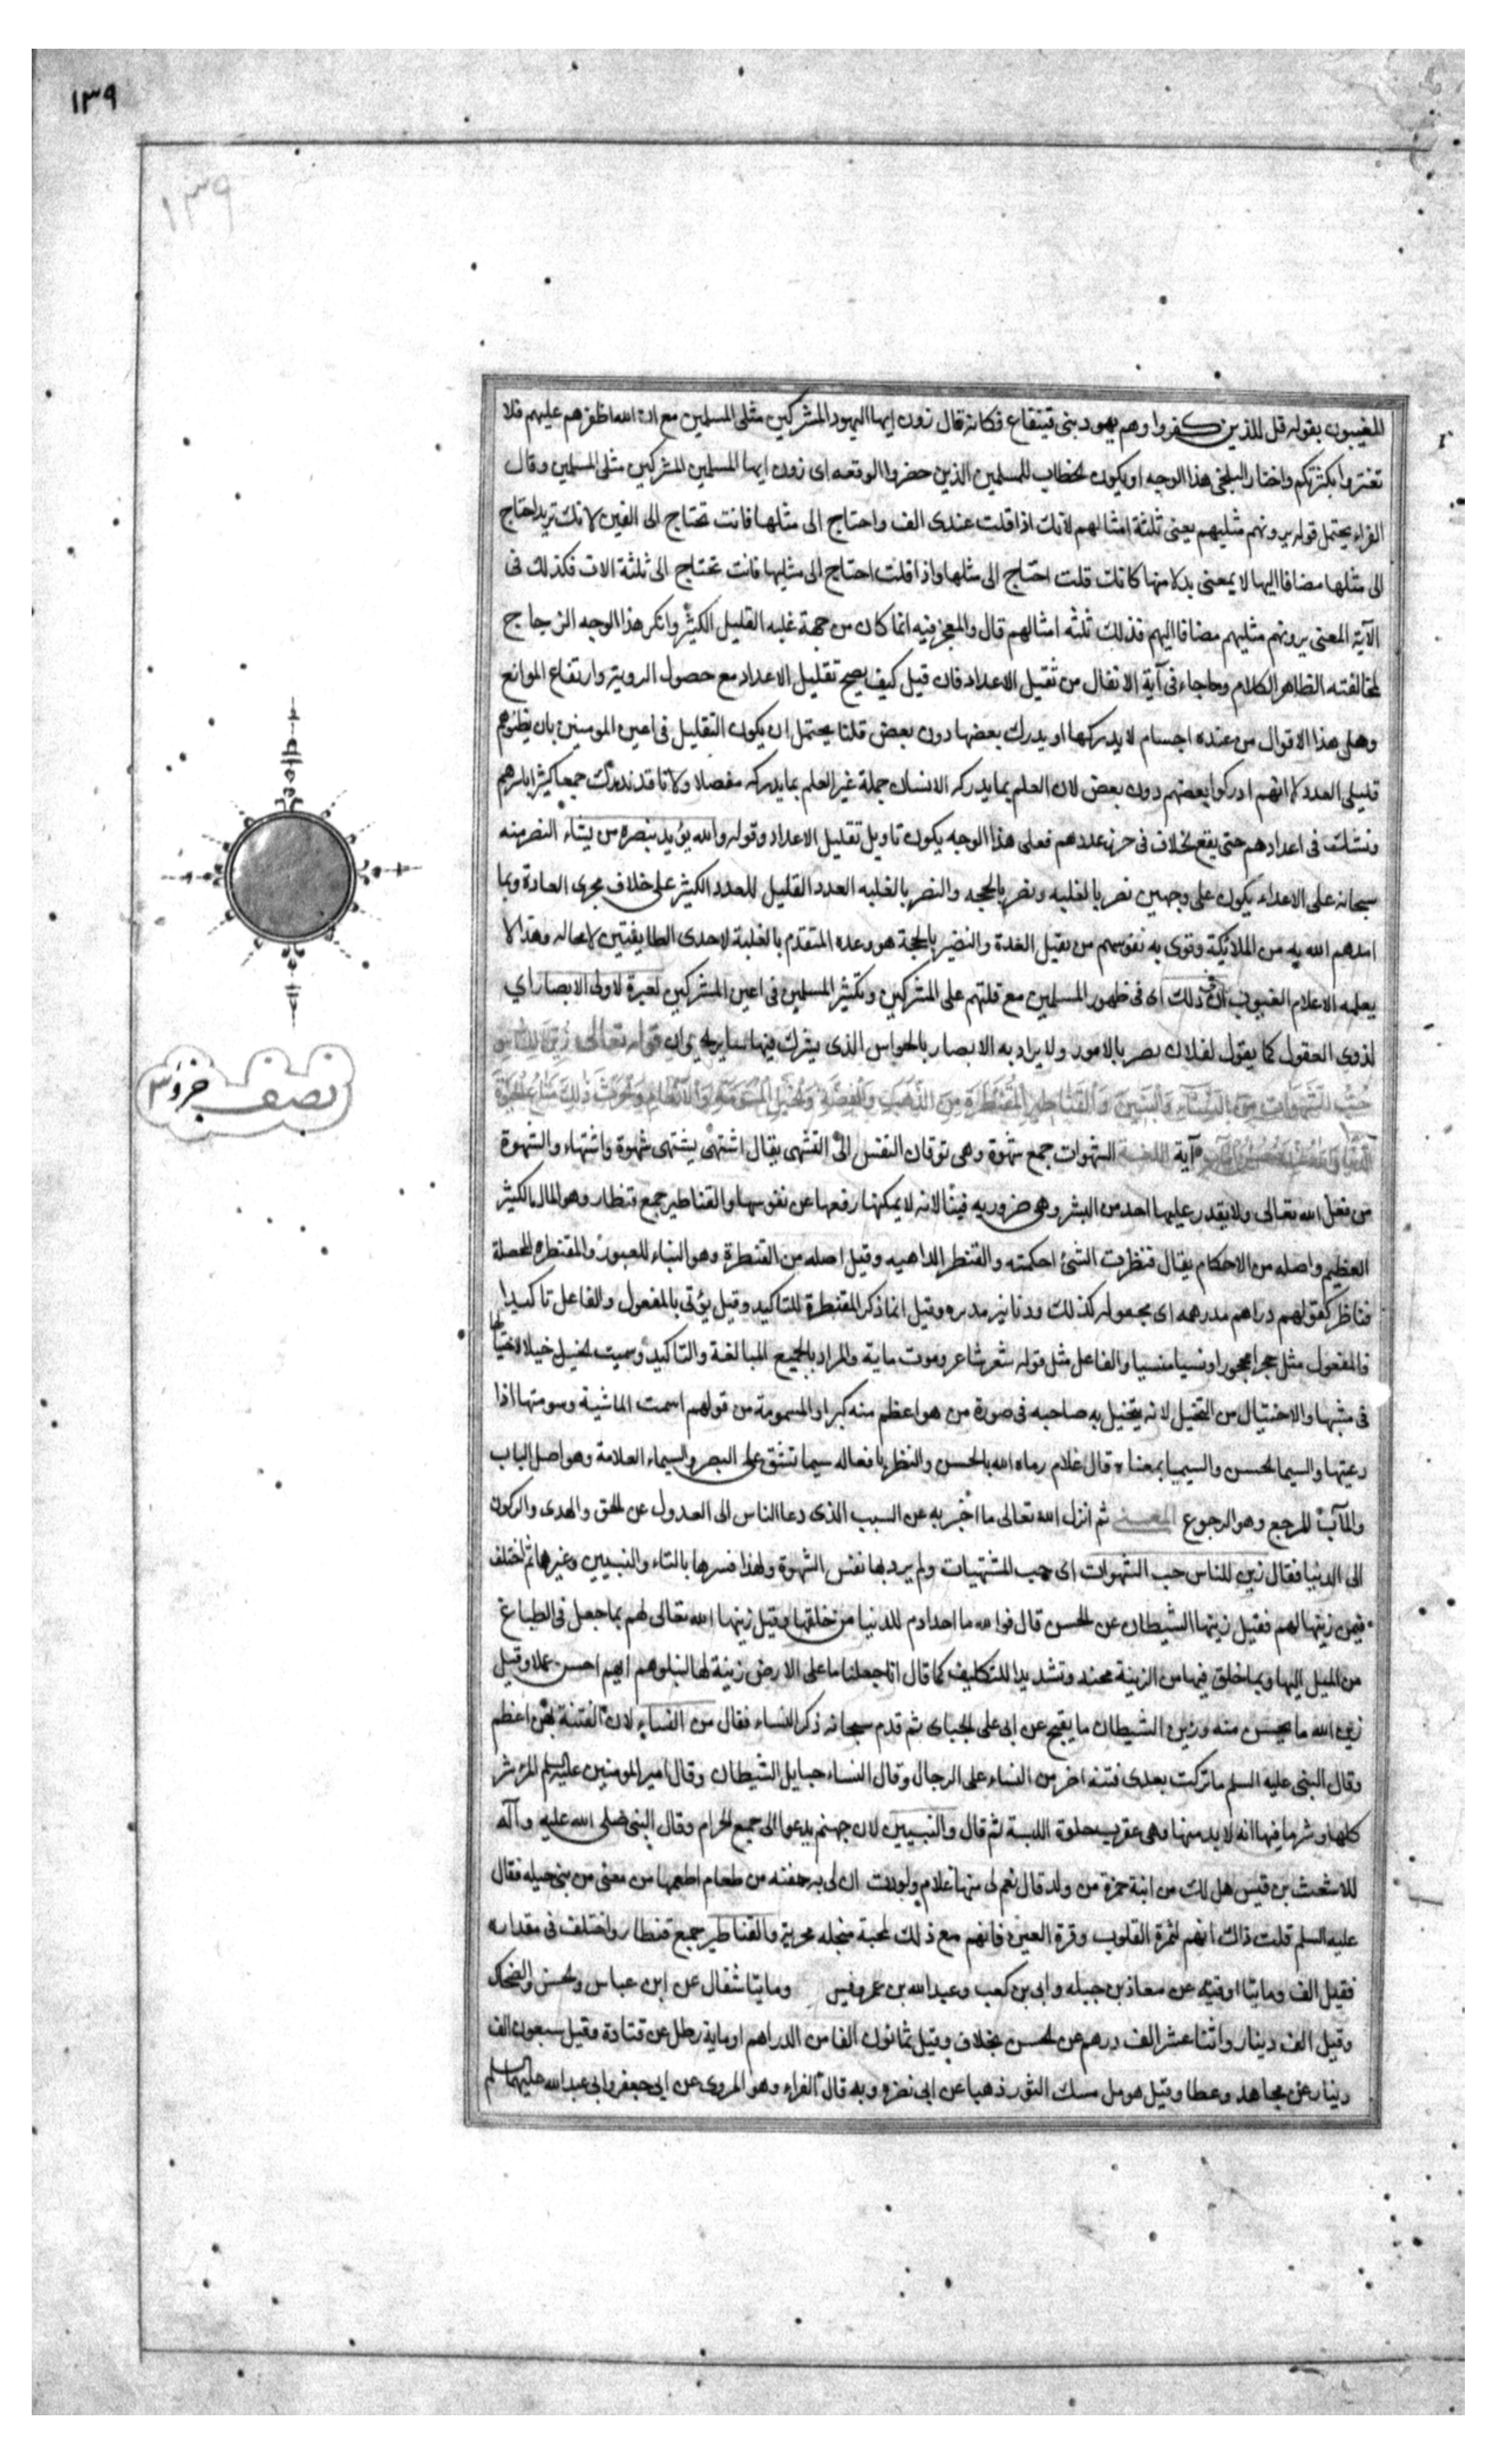 ١٣٩
١٣٩
المغيبون بقوله قل للذين كفروا وهم يهود بنى قينقاع فكانه قال ترون ايها اليهود المشركين مثلى المسلمين مع ان الله اظفرهم عليهم فلا
تغتروا بكثرتكم واختار البلخى هذا الوجه او يكون الخطاب للمسلمين الذين حضروا الوقعه اى ترون ايها المسلمين المشركين مثلى المسلمين وقال
الفراء يحتمل قوله يرونهم مثليهم يعنى ثلثة امثالهم لانك اذا قلت عندى الف واحتاج الى مثلها فانت تحتاج الى الفين لانك تريد احتاج
الى مثلها مضافا اليها لا بمعنى بدلا منها كانك قلت احتاج الى مثلها واذا قلت احتاج الى مثليها فانت تحتاج الى ثلثة الاف فكذلك فى
الآية المعنى يرونهم مثليهم مضافا اليهم فذلك ثلثه امثالهم قال والمعجز فيه انما كان من جهة غلبه القليل الكثير وانكر هذا الوجه الزجاج
لمخالفته الظاهر الكلام وما جاء فى آية الانفال من تقليل الاعداد فان قيل كيف يصح تقليل الاعداد مع حصول الروية وارتفاع الموانع
وهل هذا الاقوال من عنده اجسام لا يدركها او يدرك بعضها دون بعض قلنا يحتمل ان يكون التقليل فى اعين المومنين بان يظنوهم
قليلى العدد لا انهم ادركوا بعضهم دون بعض لان العلم بما يدركه الانسان جملة غير العلم بما يدركه مفصلا ولانا قد ندرك جمعا كثيرا باسرهم
ونشك فى اعدادهم حتى يقع الخلاف فى حرز عددهم فعلى هذا الوجه يكون تاويل تقليل الاعداد وقوله والله يؤيد بنصره من يشاء النصر منه
سبحانه على الاعداء يكون على وجهين نصر بالغلبه ونصر بالحجه والنصر بالغلبه العدد القليل للعدد الكثير على خلاف مجرى العادة وبما
امدهم الله به من الملائكة وقوى به نفوسهم من تقيل العدة والنصر بالحجة هو وعده المتقدم بالغلبة لاحدى الطايفتين لا محاله وهذا لا
يعلمه الا علام الغيوب ان فى ذلك اى فى ظهور المسلمين مع قلتهم على المشركين وتكثير المسلمين فى اعين المشركين لعبرة لاولى الابصار اي
لذوى العقول كما يقول لفلان بصر بالامور ولا يراد به الابصار بالحواس الذى يشترك فيها ساير الحيوان قوله تعالى زين للناس
حب الشهوات من النساء والبنين والقناطير المقنطرة من الذهب والفضة والخيل المسومة والانعام والحرث ذلك متاع الحيوة
الدنيا والله عنده حسن المآب آية اللغة الشهوات جمع شهوة وهى توقان النفس الى التشهى يقال اشتهى يشتهى شهوة واشتهاء والشهوة
من فعل الله تعالى ولا يقدر عليها احد من البشر وهى ضروريه فينا لانه لا يمكننا رفعها عن نفوسها والقناطير جمع قنطار وهو المال الكثير
العظيم واصله من الاحكام يقال قنطرت الشئ احكمته والقنطر الداهيه وقيل اصله من القنطرة وهو البناء للعبور والمقنطره المحصلة
قناطر كقولهم دراهم مدرهمه اى مجعوله كذلك ودنانير مدنره وقيل انما ذكر المقنطرة للتاكيد وقيل يؤتى بالمفعول والفاعل تاكيدا
فالمفعول مثل حجرا محجورا ونسيا منسيا والفاعل مثل قوله شعر شاعر وموت ماية والمراد بالجميع المبالغة والتاكيد وسميت الخيل خيلا لاختيالها
فى مشيها والاختيال من التخيل لانه يتخيل به صاحبه فى صورة من هو اعظم منه كبرا والمسمومة من قولهم اسمت الماشية وسومتها اذا
رعيتها والسيما الحسن والسيميا بمعناه قال غلام رماه الله بالحسن والنظر يا فعاله سيما تشق على البصر والسيماء العلامة وهو اصل الباب
والمآب المرجع وهو الرجوع المعنى ثم انزل الله تعالى ما اخبر به عن السبب الذى دعا الناس الى العدول عن الحق والهدى والركون
الى الدنيا فقال زين للناس حب الشهوات اى حب المشتهيات ولم يرد بها نفس الشهوة ولهذا فسرها بالنساء والبنين وغيرها ثم اختلف
فيمن زينها لهم فقيل زينها الشيطان عن الحسن قال فوالله ما احد اذم للدنيا من خلقها وقيل زينها الله تعالى لهم بما جعل فى الطباع
من الميل اليها وبما خلق فيها من الزينة محنه وتشديدا للتكليف كما قال انا جعلنا ما على الارض زينة لها لنبلوهم ايهم احسن عملا وقيل
زين الله ما يحسن منه وزين الشيطان ما يقبح عن ابى على الجبائى ثم قدم سبحانه ذكر النساء فقال من النساء لان الفتنة بهن اعظم
وقال النبى عليه السلم ما تركت بعدى فتنه اضر من النساء على الرجال وقال النساء حبايل الشيطان وقال امير المومنين عليه السلم المرء شر
كلها وشر ما فيها انه لا بد منها وهى عقرب حلوة اللسبة ثم قال والبنين لان حبهم يدعوا الى جميع الحرام وقال النبى صلى الله عليه وآله
للاشعث بن قيس هل لك من ابنة حمزة من ولد قال نعم لى منها غلام ولوددت ان لى به جفنه من طعام اطعمها من معنى من بنى جبله فقال
عليه السلم قلت ذاك انهم لثمرة القلوب وقرة العين فانهم مع ذلك لمجبة مبخله محزنة والقناطير جمع قنطار واختلف فى مقداره
فقيل الف وماتيا اوقيه عن معاذ بن جبله وابى بن كعب وعبد الله بن عمر وقيس وماتيا مثقال عن ابن عباس والحسن والضحاك
وقيل الف دينار واثنا عشر الف درهم عن الحسن بخلاف وقيل ثمانون الفا من الدراهم او ماية رطل عن قتادة وقيل سبعون الف
دينار عن مجاهد وعطا وقيل هو مل مسك الثور ذهبا عن ابى نضره وبه قال الفراء وهو المروى عن ابى جعفر وابى عبد الله عليهما السلم
نصف جزؤ ٣